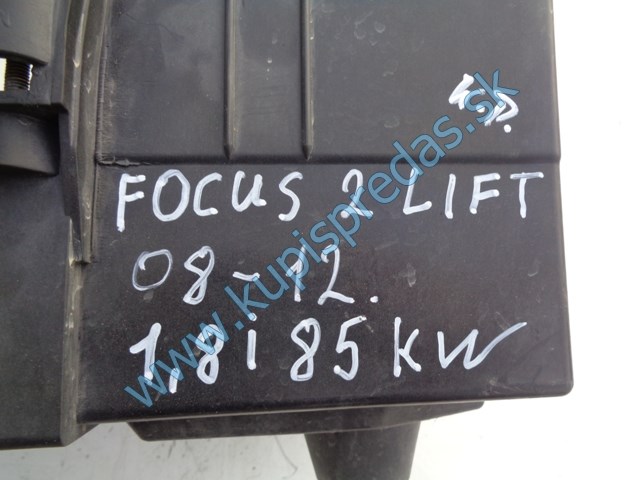 K.P.
FOCUS 2 LIFT
08-12.
1,8i 85 KW
www.kupispredas.sk